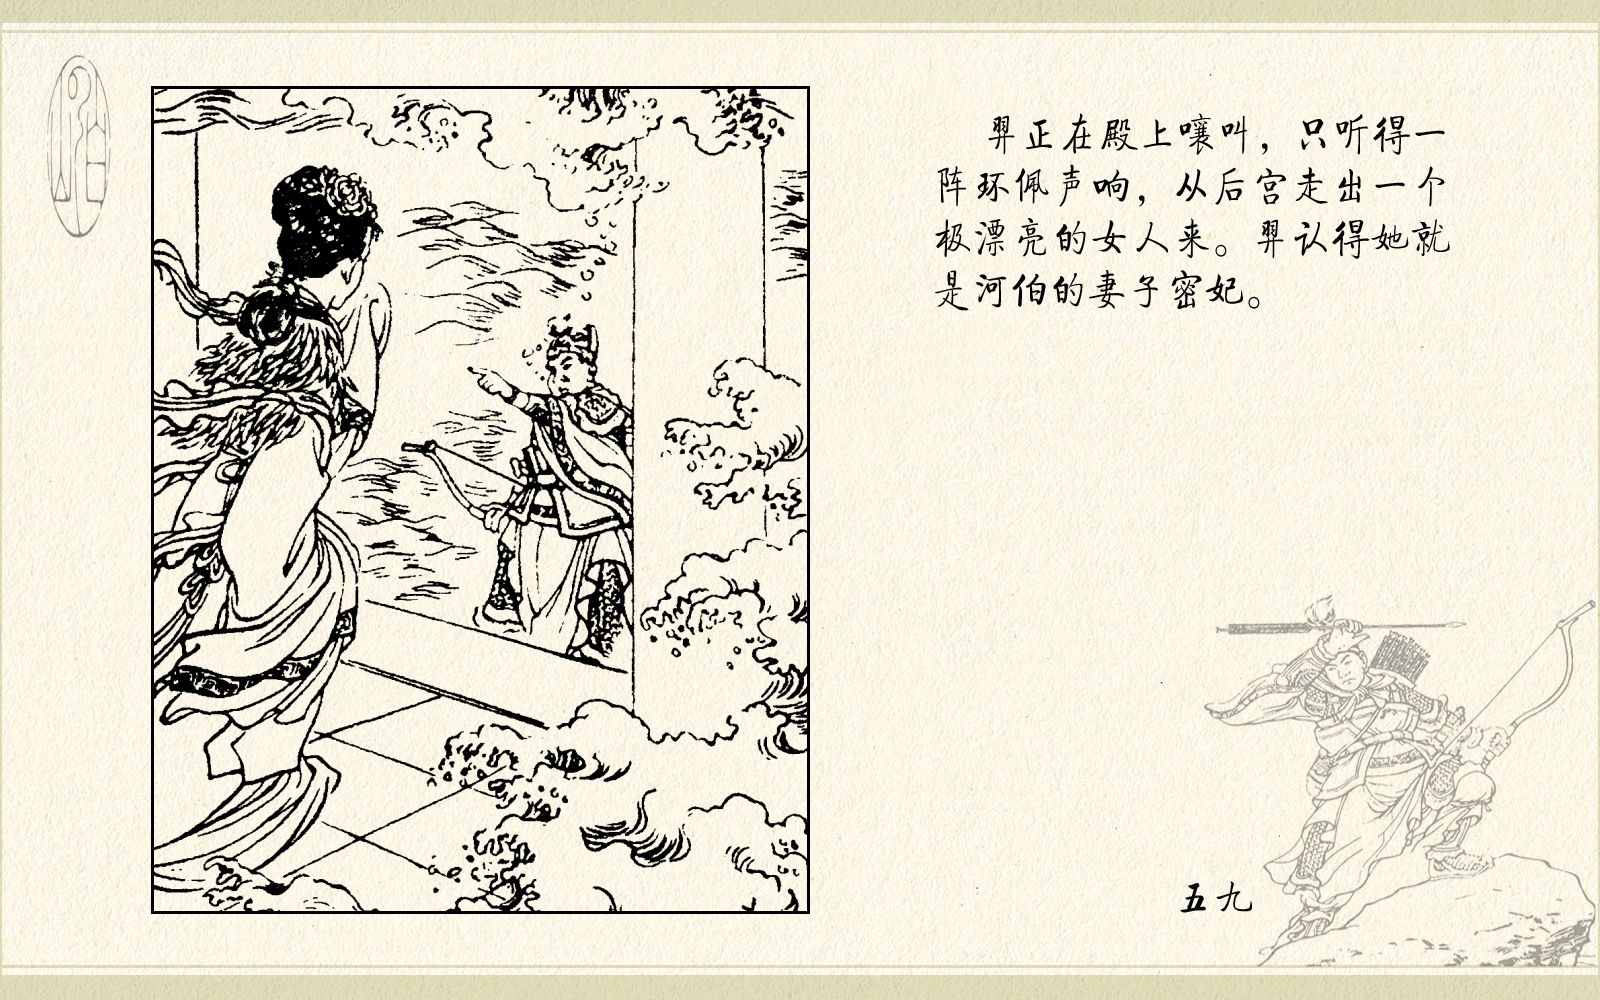 羿正在殿上嚷叫，只听得一
阵环佩声响，从后宫走出一个
极漂亮的女人来。羿认得她就
是河伯的妻子密妃。
五九